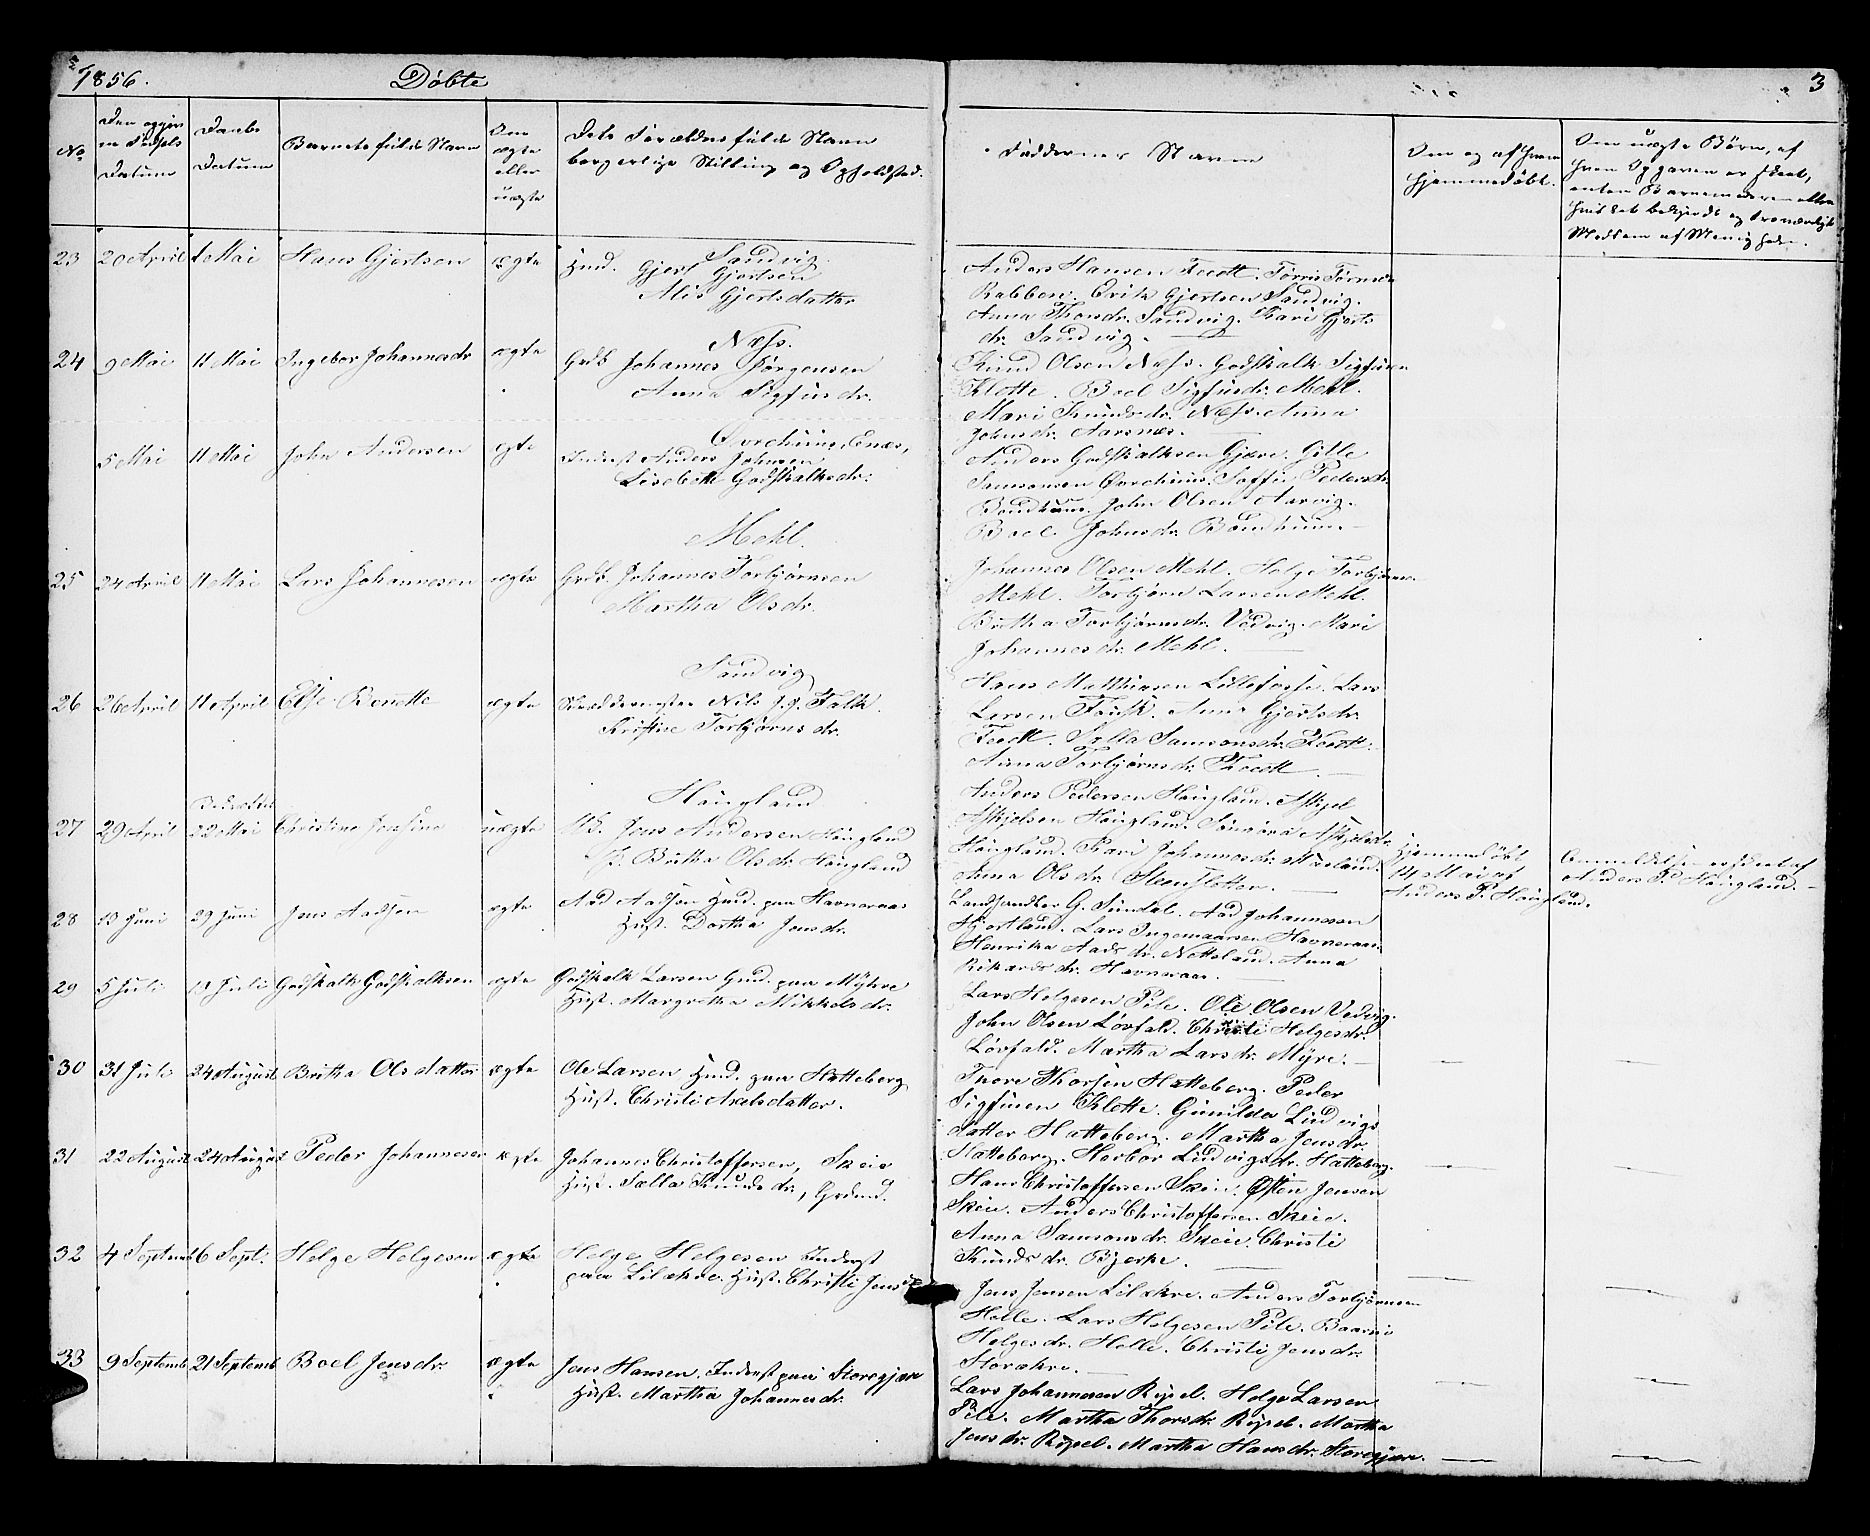 1856. Døbte
3
No
Den opgivne Fødsels Datum
Daabs Datum
Barnets fulde Navn
Om ægte eller uægte
Dets Forældres fulde Navn
borgerlige Stilling og Opholdsted.
Faddernes Navne
Om og af hvem
hjemmedøbt.
Om uægte Børn, af
hvem Opgaven er skeet,
enten Barnemoderen eller
Medlem af Menigheden.
23 20 April 1 Mai Hans Gjertsen ægte Huusmd. Sandvig.
Gjert Gjertsen
Gjertsdatter
Anders Hansen
Rabben. Gjertsen Sandvig.
Anna Thorsdr. Sandvig. Kari Gjerts
dr. Sandvig.
24 9 Mai 11 Mai Ingebor Johannesdr ægte Næss.
Grdb Johannes Jørgensen
Anna Sigfusdr.
Knud Olsen Næss. Godskalk Sigfusen
Klette. Boel Sigfusdr. Mehl.
Mari Knudsdr. Næss. Anna
Johnsdr. Aarsnes.
5 Mai 11 Mai John Andersen ægte
Inderst Anders Johnsen
Lisebette Godskalksdr.
Anders Godskalksen Gjære. Gille
Samsonsen Pedersdr.
Bondhuus. John Olsen Aarvig.
Boel Johnsdr. Bondhuus.
Mehl.
25 24 April 11 Mai Lars Johannesen ægte Grdb. Johannes Torbjørnsen
Martha Olsdr.
Johannes Olsen Mehl. Helge Torbjørnsen
Mehl. Torbjørn Larsen Mehl.
Britha Torbjørnsdr. Vedvig. Mari
Johannesdr. Mehl.
Sandvig
26 26 April 11 April Else Bonette ægte Skræddermester Nils J. J. Falk.
Kristine Torbjørnsdr.
Hans Matthiasen Lillefosse. Lars
Larsen Fausk. Anna Gjertsdr.
Samsonsdr.
Anna Torbjørnsdr.
Haugland
27 29 April 22 Mai Christine Josefine uægte Jens Andersen Haugland
P. Britha Olsdr. Haugland
Anders Pedersen Haugland. Askjel
Askjelsen Haugland. Askjelsdr.
Haugland. Kari Johannesdr.
Anna Olsdr. Steensletten.
Hjemmedøbt
14 Mai af
Anders P. Haugland.
Anmeldelsen er skeet af
Anders P. Haugland.
28 13 Juni 29 Juni Jens Aadsen ægte Aad Aadsen Huusmd. paa Havneraas
Hust. Dorthea Jensdr.
Landhandler G. Sundal. Aad Johannesen
Hjortland. Lars Ingemaarsen Havneraas.
Henrika Aadsdr. Netteland. Anna
Rikardsdr. Havneraas.
29 5 Juli 13 Juli Godskalk Godskalksen ægte Godskalk Larsen Huusmd. paa Myhre
Hust. Margretha Mikkelsdr.
Lars Helgesen Pile. Ole Olsen Vedvig.
John Olsen Løvfald. Christi Helgesdr.
Løvfald. Martha Larsdr. Myre.
30 31 Juli 24 August Britha Olsdatter ægte Ole Larsen Huusmd. paa Hatteberg
Hust. Christi Axelsdatter.
Tore Thorsen Hatteberg. Peder
Sigfusen Klette. Gunilda Ludvigs
datter Hatteberg. Martha Jensdr.
Hatteberg. Herbor Ludvigsdr. Hatteberg.
31 22 August 24 August Peder Johannesen ægte Johannes Christoffersen, Skeie
Hust. Sælla Knudsdr., Grdmd.
Hans Christoffersen Skeie. Østen Jensen
Skeie. Anders Christoffersen Skeie.
Anna Samsonsdr. Skeie. Christi
Knudsdr. Bjerke.
32 4 Septemb 6 Sept. Helge Helgesen ægte Helge Helgesen Inderst
paa Lilækre. Hust. Christi Jensdr
Jens Jensen Lilækre. Anders Torbjørnsen
Helle. Lars Helgesen Pile. Baarni
Helgesdr. Helle. Christi Jensdr.
Storækre.
33 9 Septemb 21 Septemb Boel Jensdr. ægte Jens Hansen. Inderst paa Storegjære
Hust. Martha Johannesdr.
Lars Johannesen Rypel. Helge Larsen
Pile. Martha Thorsdr. Rypel. Martha
Jensdr. Rypel. Martha Hansdr. Storegjære.